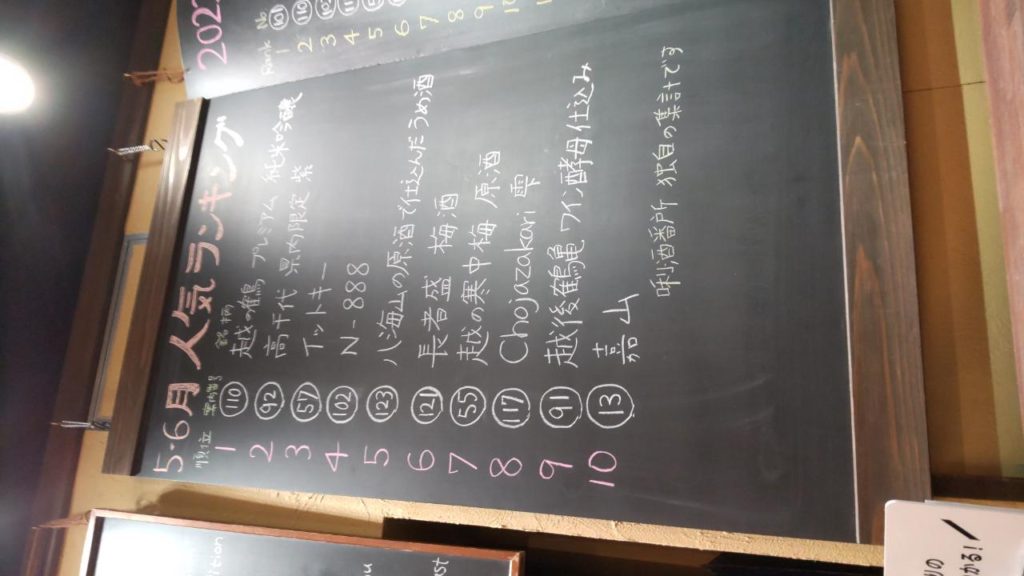 5・6月 人気ランキング
順位 案内番号 銘柄
1 110 越の鶴 プレミアム 純米吟醸
2 92 高千代 県内限定 紫
3 57 下ットキー
4 102 N-888
5 123 八海山の原酒で仕込んだうめ酒
6 121 長者盛 梅酒
7 55 越の寒中梅 原酒
8 117 Chojazakari 雫
9 91 越後鶴亀 ワイン酵母仕込み
10 13 嘉山
唎酒番所 独自の集計です
202
Rank No
1 101
2
3
4
5
6
7
8
9